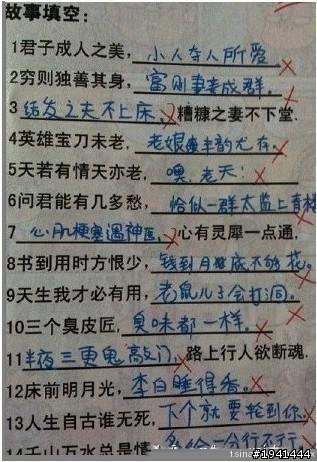 故事填空：
1君子成人之美，小人夺人所爱
2穷则独善其身，富则妻妾成群。
3结发之夫不上床，糟糠之妻不下堂.
4英雄宝刀未老，老娘风韵尤存。
5天若有情天亦老，噢，老天！
6问君能有几多愁，恰似一群太监上青楼
7心肌梗塞遇神医，心有灵犀一点通，
8书到用时方恨少，钱到月底不够花。
9天生我才必有用，老鼠儿子会打洞。
10三个臭皮匠，臭味都一样。
11半夜三更鬼敲门，路上行人欲断魂.
12床前明月光，李白睡得香。
13人生自古谁无死，下个就要轮到你.
14千山万水总是情，多给一分行不行。
#1941444